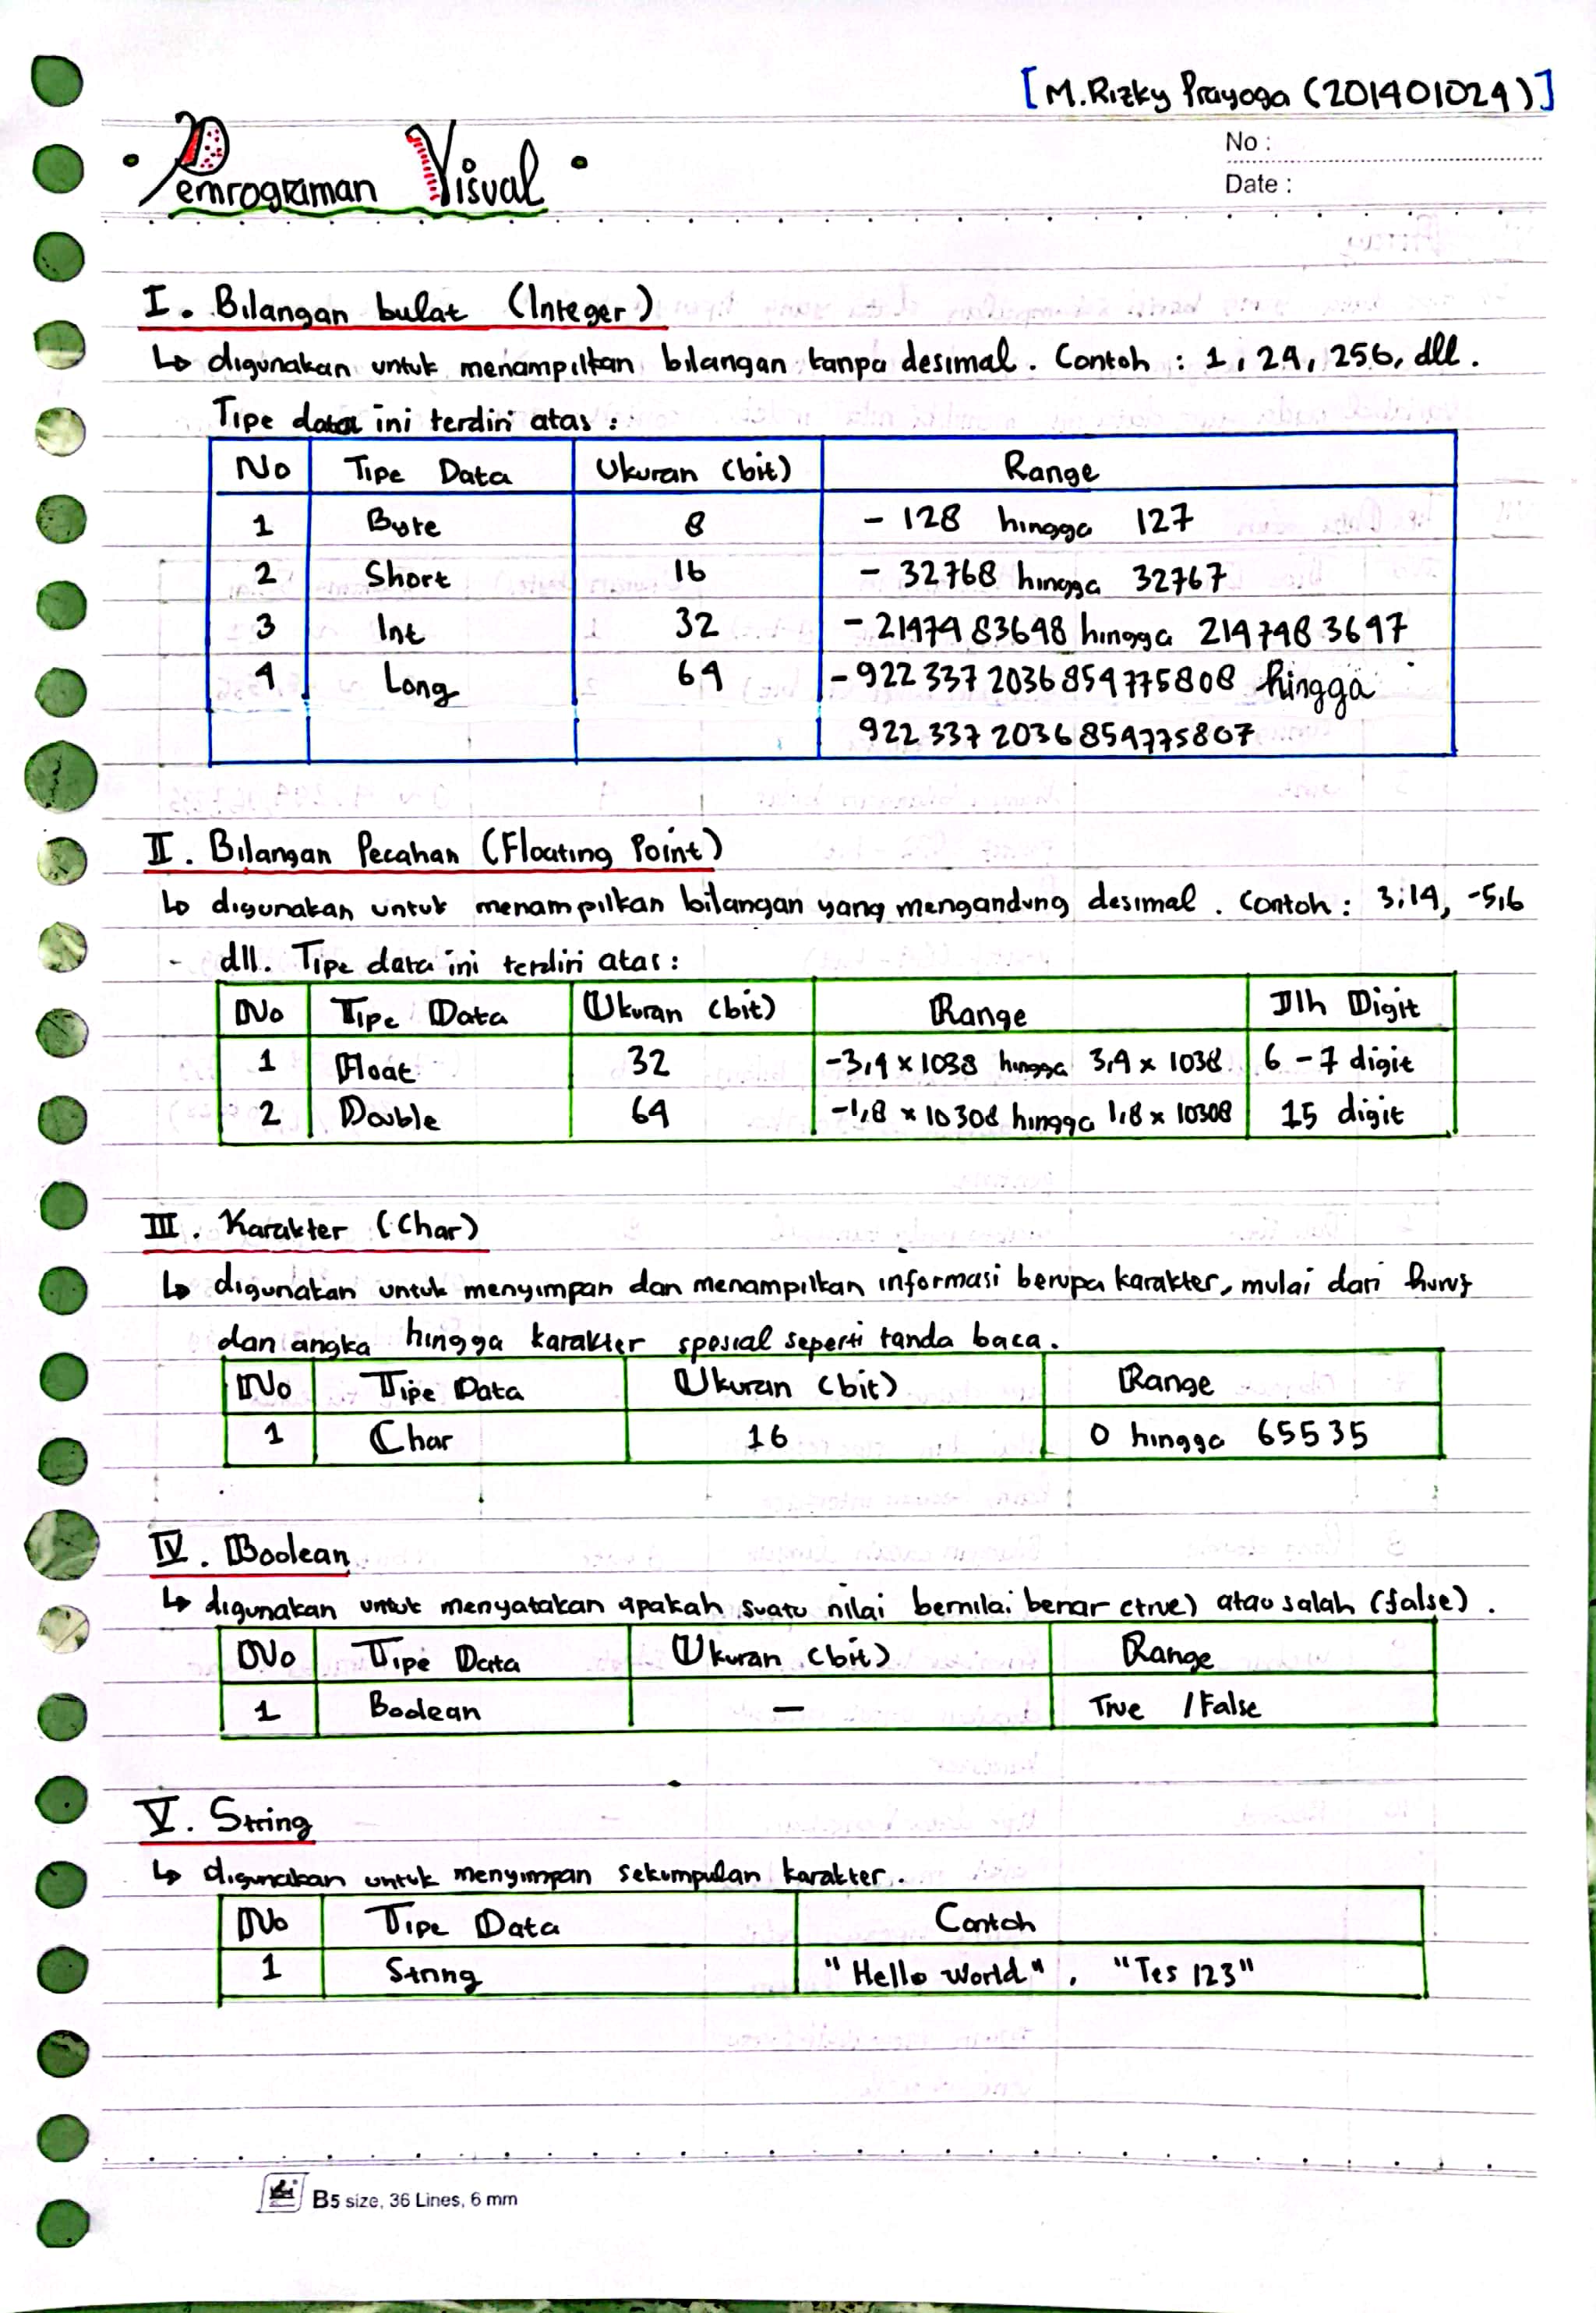 [M.Rizky Prayoga (201401024)]
No :
Date :
• Pemrograman Visual •
I. Bilangan bulat (Integer)
↳ digunakan untuk menampilkan bilangan tanpa desimal. Contoh : 1, 24, 256, dll.
Tipe data ini terdiri atas :
No Tipe Data Ukuran (bit) Range
1 Byte 8 - 128 hingga 127
2 Short 16 - 32768 hingga 32767
3 Int 32 - 2147483648 hingga 2147483647
4 Long 64 - 922 337 2036 854775808 hingga
922 337 2036 854775807
II. Bilangan Pecahan (Floating Point)
↳ digunakan untuk menampilkan bilangan yang mengandung desimal. Contoh : 3,14, -5,6
- dll. Tipe data ini terdiri atas :
No Tipe Data Ukuran (bit) Range Jlh Digit
1 Float 32 -3,4 x 1038 hingga 3,4 x 1038 6 - 7 digit
2 Double 64 -1,8 x 10308 hingga 1,8 x 10308 15 digit
III. Karakter (Char)
↳ digunakan untuk menyimpan dan menampilkan informasi berupa karakter, mulai dari huruf
dan angka hingga karakter spesial seperti tanda baca.
No Tipe Data Ukuran (bit) Range
1 Char 16 0 hingga 65535
IV. Boolean
↳ digunakan untuk menyatakan apakah suatu nilai bernilai benar (true) atau salah (false).
No Tipe Data Ukuran (bit) Range
1 Boolean — True / False
V. String
↳ digunakan untuk menyimpan sekumpulan karakter.
No Tipe Data Contoh
1 String "Hello World", "Tes 123"
B5 size, 36 Lines, 6 mm